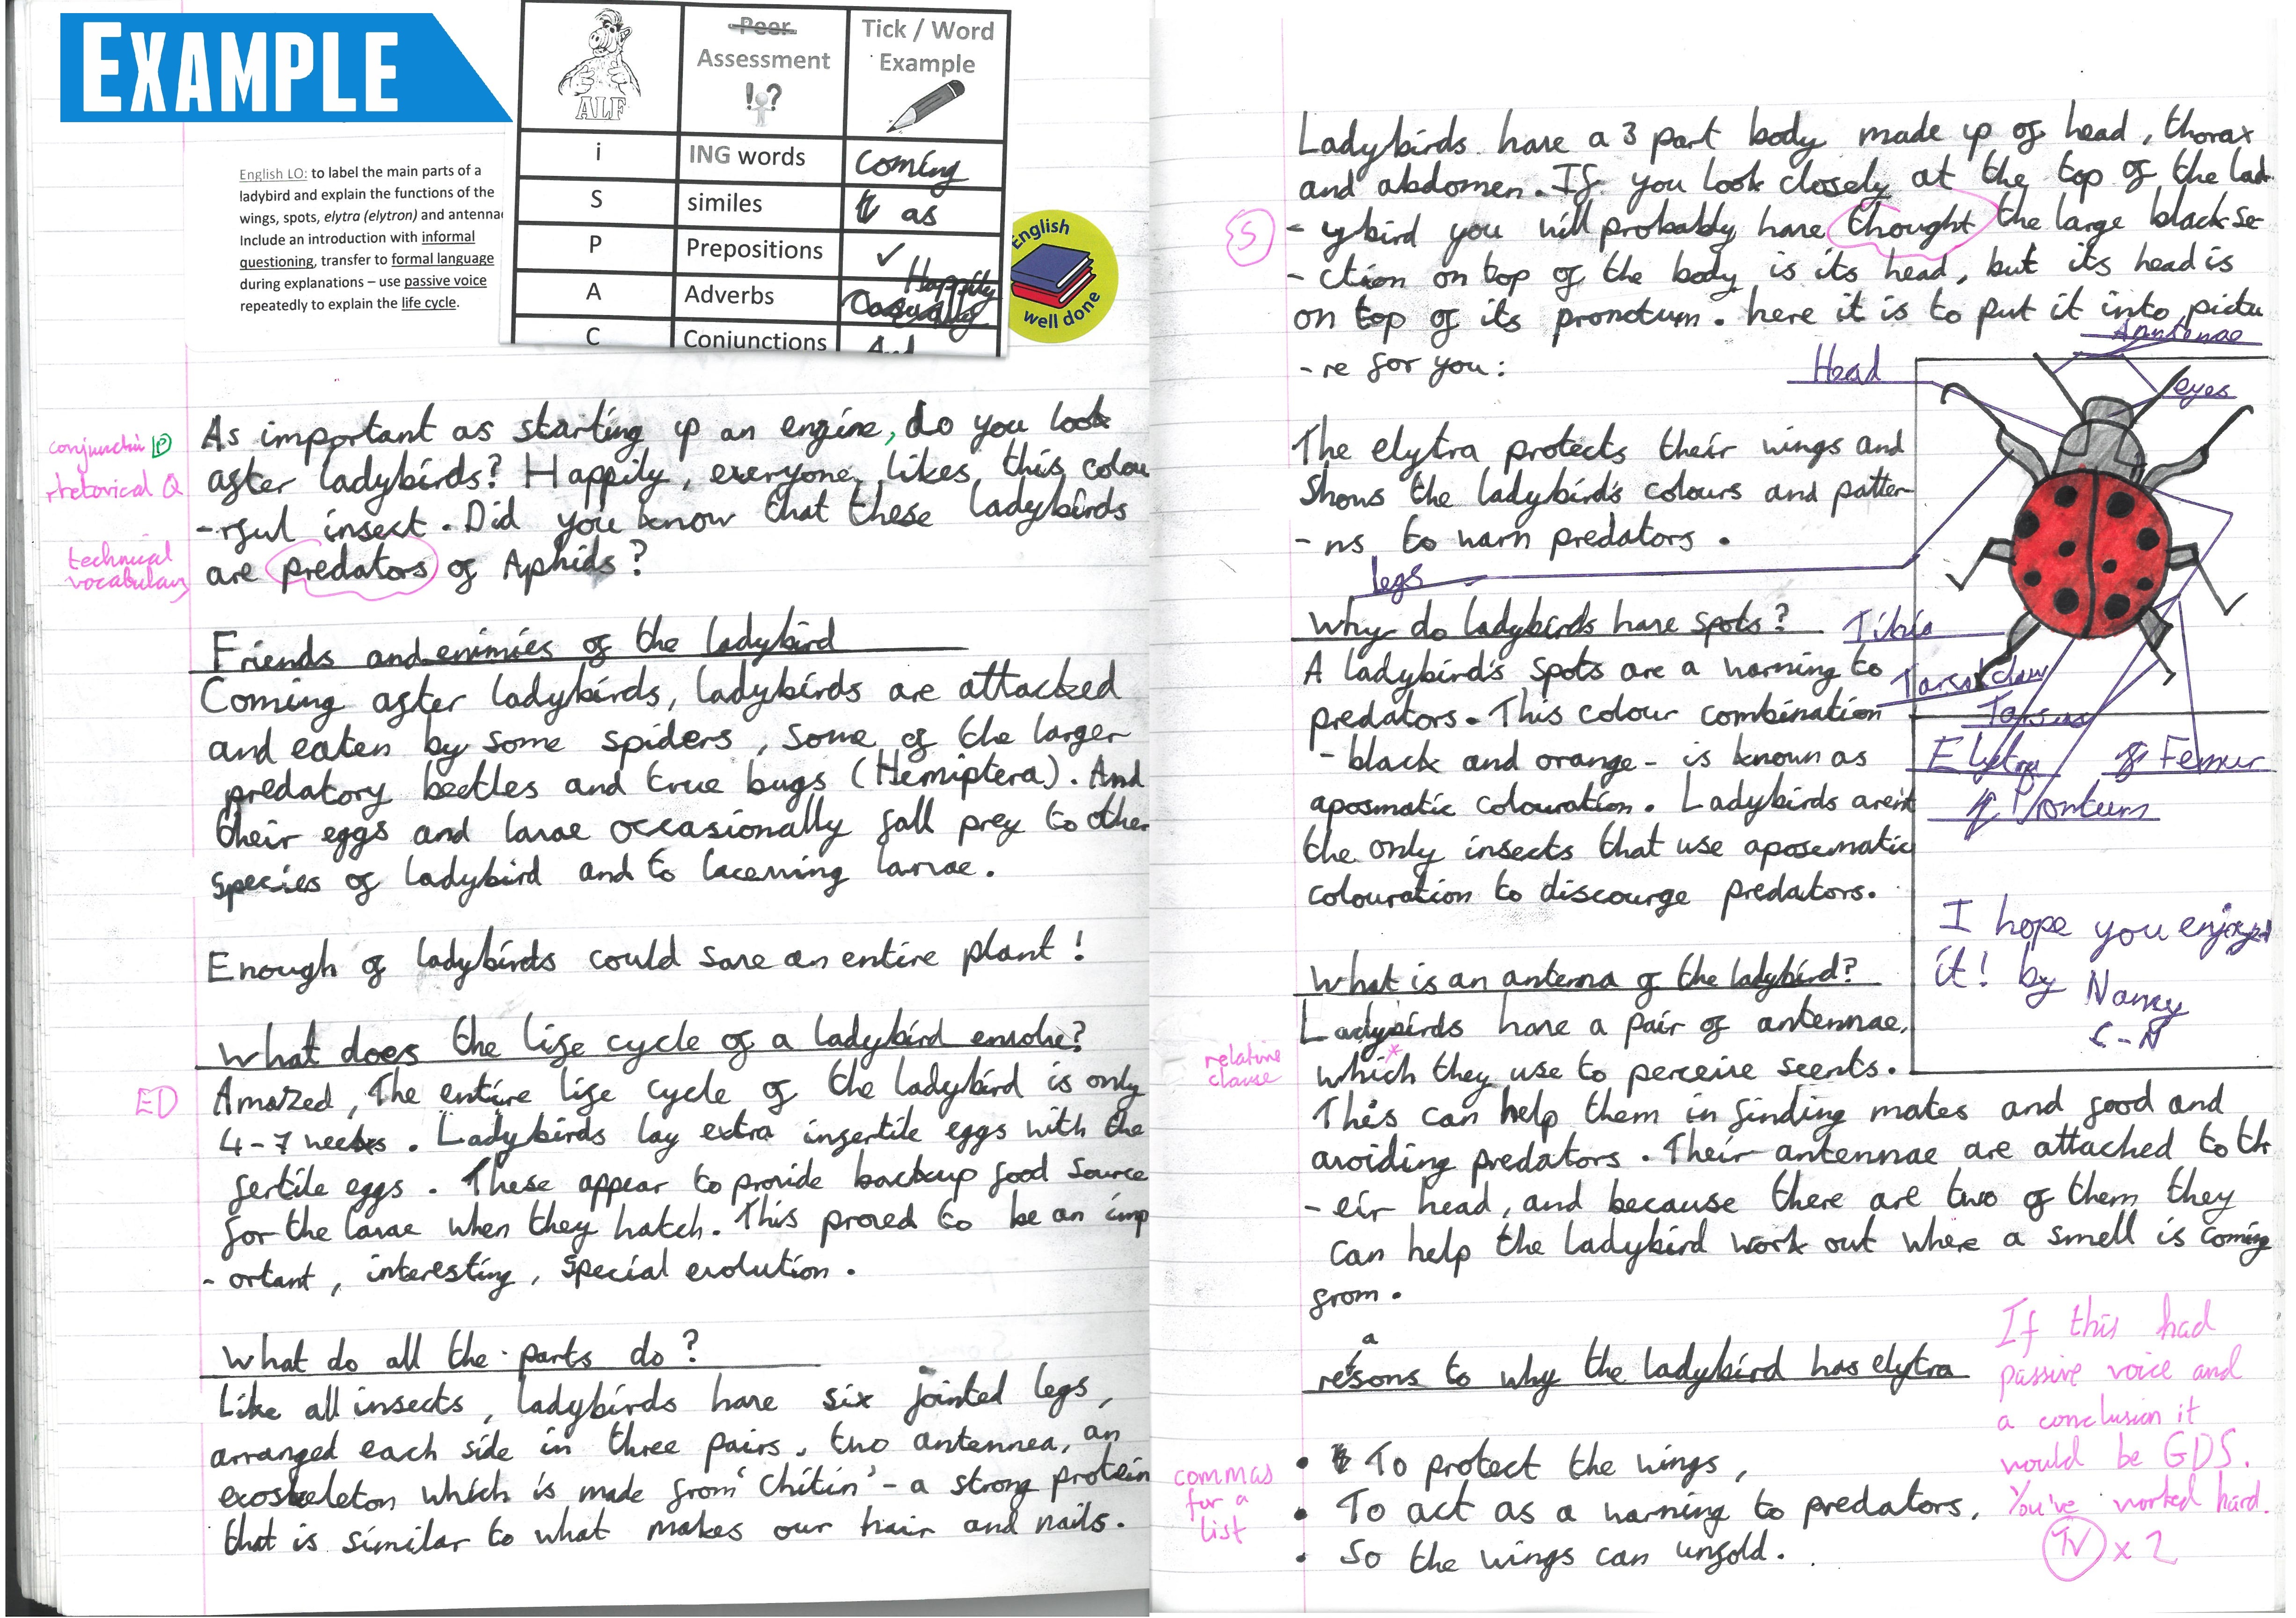 EXAMPLE
English LO: to label the main parts of a
ladybird and explain the functions of the
wings, spots, elytra (elytron) and antenna
Include an introduction with informal
questioning, transfer to formal language
during explanations – use passive voice
repeatedly to explain the life cycle.
ALF
Peer
Assessment
!?
Tick / Word
Example
i
ING words
coming
S
similes
as
P
Prepositions
✓
A
Adverbs
Happily
Casually
C
Conjunctions
And
English
well done
conjunction P
rhetorical Q
technical
vocabulary
As important as starting up an engine, do you look
after ladybirds? Happily, everyone likes this colou
-rful insect. Did you know that these ladybirds
are predators of Aphids?
Friends and enimies of the ladybird
Coming after ladybirds, ladybirds are attacked
and eaten by some spiders, some of the larger
predatory beetles and true bugs (Hemiptera). And
their eggs and larae occasionally fall prey to other
species of ladybird and to lacewing larvae.
Enough of ladybirds could save an entire plant!
What does the life cycle of a ladybird envolve?
ED
Amazed, The entire life cycle of the ladybird is only
4-7 weeks. Ladybirds lay extra infertile eggs with the
fertile eggs. These appear to provide backup food source
for the larae when they hatch. This proved to be an imp
- ortant, interesting, special evolution.
What do all the parts do?
Like all insects, ladybirds have six jointed legs,
arranged each side in three pairs, two antennea, an
exoskeleton which is made from 'Chitin' - a strong protein
that is similar to what makes our hair and nails.
Ladybirds have a 3 part body made up of head, thorax
and abdomen. If you look closely at the top of the lad
S
- ybird you will probably have thought the large black se
- ction on top of the body is its head, but its head is
on top of its pronotum. here it is to put it into pictu
- re for you:
Head
Anntenae
eyes
The elytra protects their wings and
Shows the ladybird's colours and patter
- ns to warn predators.
legs
Why do ladybirds have spots?
Tibia
A ladybird's spots are a warning to
predators. This colour combination
- black and orange - is known as
aposmatic colouration. Ladybirds aren't
the only insects that use aposematic
colouration to discourge predators.
Tarsal claw
Tarsus
Elytra
Femur
Prontum
I hope you enjoyed
it! by Nancy
C-N
What is an antenna of the ladybird?
Ladybirds have a pair of antennae,
relative
clause
which they use to perceive scents.
This can help them in finding mates and food and
avoiding predators. Their antennae are attached to th
- eir head, and because there are two of them they
can help the ladybird work out where a smell is coming
from.
a
resons to why the ladybird has elytra
commas
for a
list
• To protect the wings,
• To act as a warning to predators,
• So the wings can unfold.
If this had
passive voice and
a conclusion it
would be GDS.
You've worked hard.
TV x 2